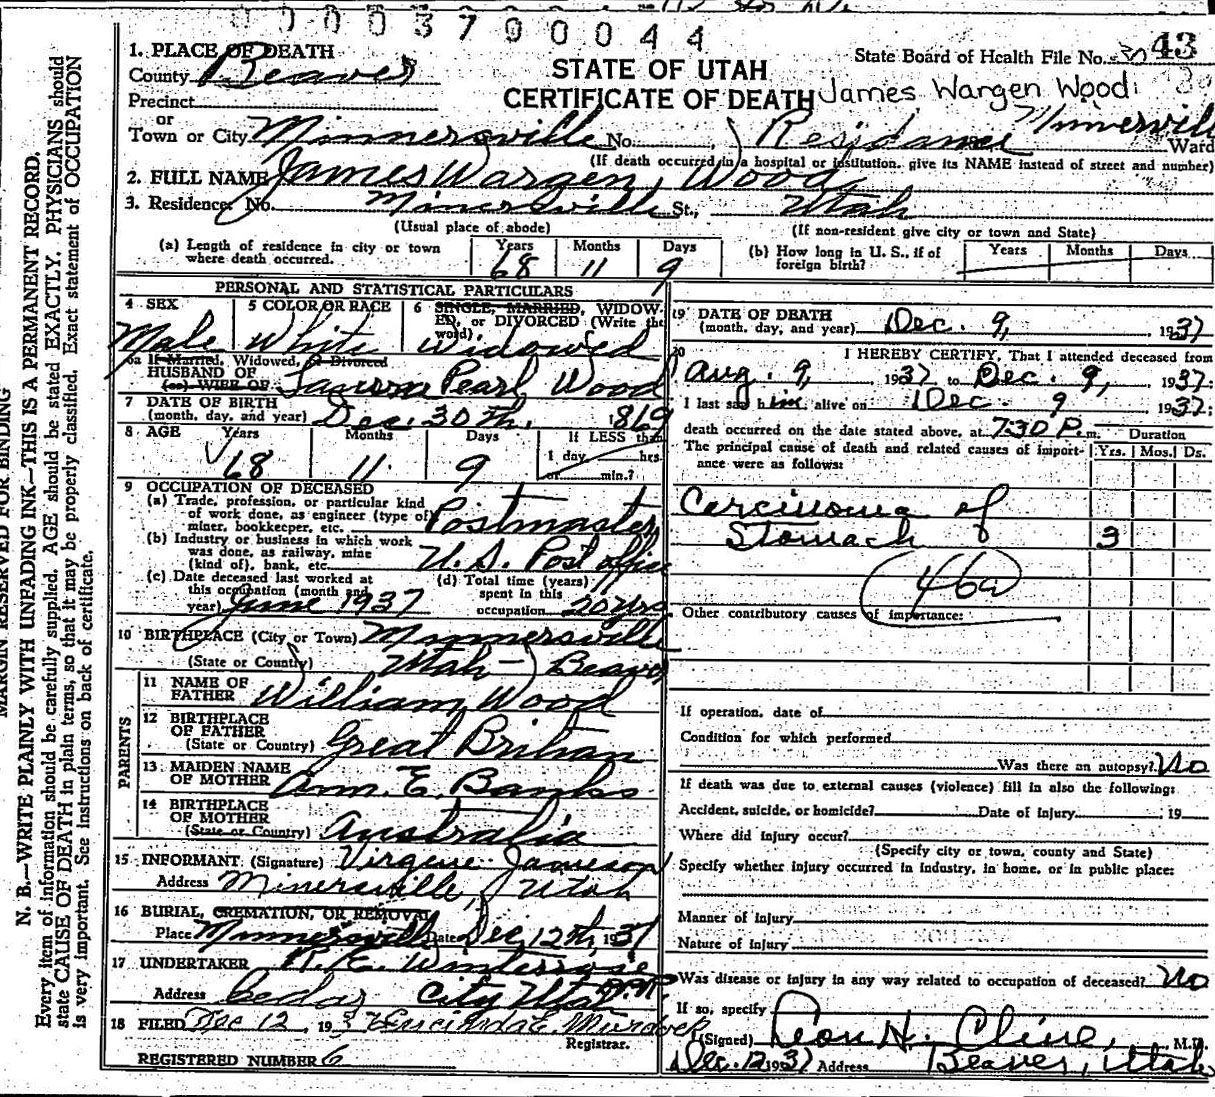 0 0 0 3 7 0 0 0 4 4
1. PLACE OF DEATH
County Beaver
Precinct
or
Town or City Minnersville No. Residance Ward
STATE OF UTAH
CERTIFICATE OF DEATH
State Board of Health File No. 43
James Wargen Wood
(If death occurred in a hospital or institution, give its NAME instead of street and number)
2. FULL NAME James Wargen Wood
3. Residence: No. Minersville St., Utah
(Usual place of abode) (If non-resident give city or town and State)
(a) Length of residence in city or town where death occurred. Years 68 Months 11 Days 9
(b) How long in U. S., if of foreign birth? Years Months Days
PERSONAL AND STATISTICAL PARTICULARS
4 SEX Male
5 COLOR OR RACE White
6 SINGLE, MARRIED, WIDOWED, or DIVORCED (Write the word) Widowed
6a If Married, Widowed, or Divorced
HUSBAND OF
(or) WIFE OF Pearl Wood
7 DATE OF BIRTH
(month, day, and year) Dec. 30th, 1869
8 AGE Years 68 Months 11 Days 9 If LESS than
1 day hrs.
or min.?
9 OCCUPATION OF DECEASED
(a) Trade, profession, or particular kind
of work done, as engineer (type of)
miner, bookkeeper, etc. Postmaster
(b) Industry or business in which work
was done, as railway, mine
(kind of), bank, etc. U. S. Post office
(c) Date deceased last worked at
this occupation (month and
year) June 1937
(d) Total time (years)
spent in this
occupation 20 yrs
10 BIRTHPLACE (City or Town) Minnersville
(State or Country) Utah - Beaver
PARENTS
11 NAME OF
FATHER William Wood
12 BIRTHPLACE
OF FATHER
(State or Country) Great Britian
13 MAIDEN NAME
OF MOTHER Ann. E. Banks
14 BIRTHPLACE
OF MOTHER
(State or Country) Australia
15 INFORMANT (Signature) Virgene Jameson
Address Minersville, Utah
16 BURIAL, CREMATION, OR REMOVAL
Place Minnersville Date Dec, 12th, 1937
17 UNDERTAKER
Address Cedar City Utah
18 FILED Dec 12, 193 E. Murdock
Registrar.
REGISTERED NUMBER 6
19 DATE OF DEATH
(month, day, and year) Dec. 9, 1937
20 I HEREBY CERTIFY, That I attended deceased from
Aug. 9, 1937 to Dec. 9, 1937:
I last saw him alive on Dec. 9 1937:
death occurred on the date stated above, at 7:30 P. m. Duration
The principal cause of death and related causes of importance were as follows: Yrs. Mos. Ds.
Carcinoma of
Stomach 3
46a
Other contributory causes of importance:
If operation, date of
Condition for which performed
Was there an autopsy? No
If death was due to external causes (violence) fill in also the following:
Accident, suicide, or homicide? Date of Injury 19
Where did injury occur?
(Specify city or town, county and State)
Specify whether injury occurred in industry, in home, or in public place:
Manner of Injury
Nature of Injury
Was disease or injury in any way related to occupation of deceased? No
If so, specify
(Signed) Leon H. Cline, M.D.
Dec. 12 1937 Address Beaver, Utah
MARGIN RESERVED FOR BINDING
N. B.—WRITE PLAINLY WITH UNFADING INK—THIS IS A PERMANENT RECORD.
Every item of information should be carefully supplied. AGE should be stated EXACTLY. PHYSICIANS should
state CAUSE OF DEATH in plain terms, so that it may be properly classified. Exact statement of OCCUPATION
is very important. See instructions on back of certificate.